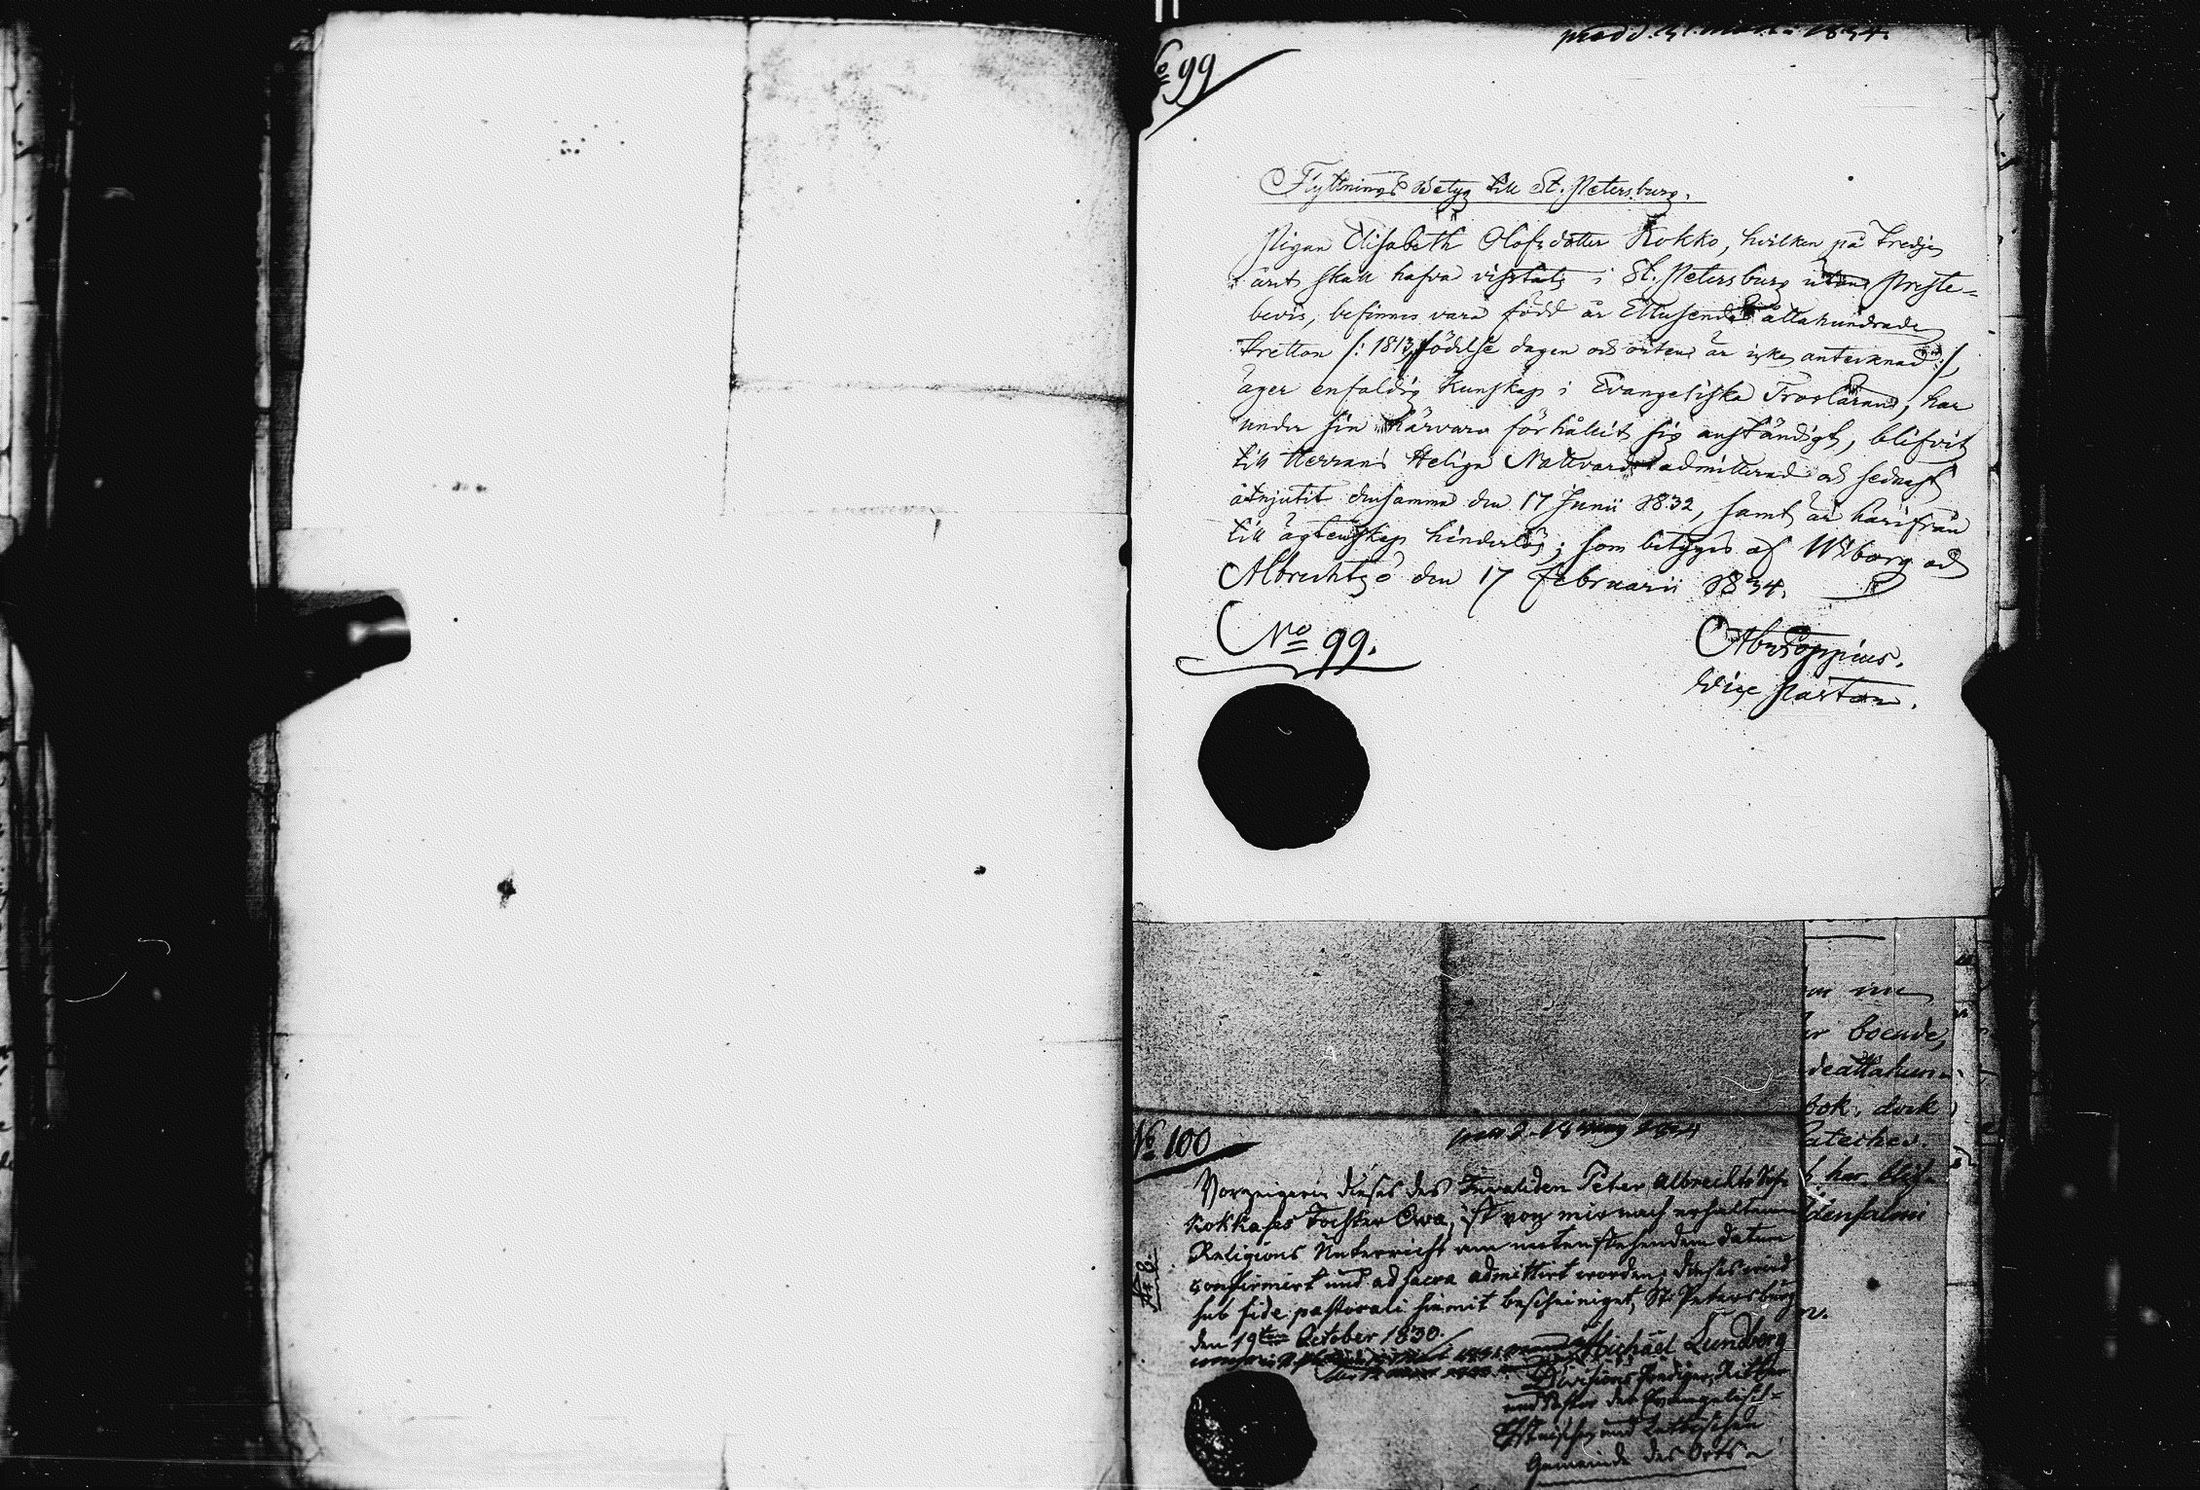 prod. d. 31 Martii 1834.
No 99
Flyttnings Betyg till St. Petersburg.
Pigan Elisabeth Olofsdotter Kokko, hvilken på tredje
året skall hafva vistats i St. Petersburg utan Preste=
bevis, befinnes vara född år Ettusende åttahundrade
tretton /: 1813, födelse dagen och orten är icke antecknad :/
äger enfaldig kunskap i Evangeliska Trosläran, har
under sin härvaro förhållit sig anständigt, blifvit
till Herrans Heliga Nattvard admitterad och sednast
åtnjutit densamma den 17 Junii 1832, samt är härifrån
till ägtenskap hinderlös; som betygas af Wiborg och
Albrechtzô den 17 Februarii 1834.
No 99.
Abr Poppius.
Vice Pastor.
No 100
Vorzeigerin dieses des Invaliden Peter Albrechts Sohn
Kokkases Tochter Ewa, ist von mir nach erhaltenem
Religions Unterricht am untenstehendem Datum
confirmirt und ad sacra admittirt worden, dieses wird
sub fide pastorali hiemit bescheiniget, St. Petersburg
den 19ten October 1830.
Michaël Lundberg
Divisions Prediger, Ritter
und Pastor der Evangelisch=
Ehstnischen und Lettischen
Gemeinde des Orts
boende,
deåttahun=
bok, dock
Cateches.
har blif=
idensalmi